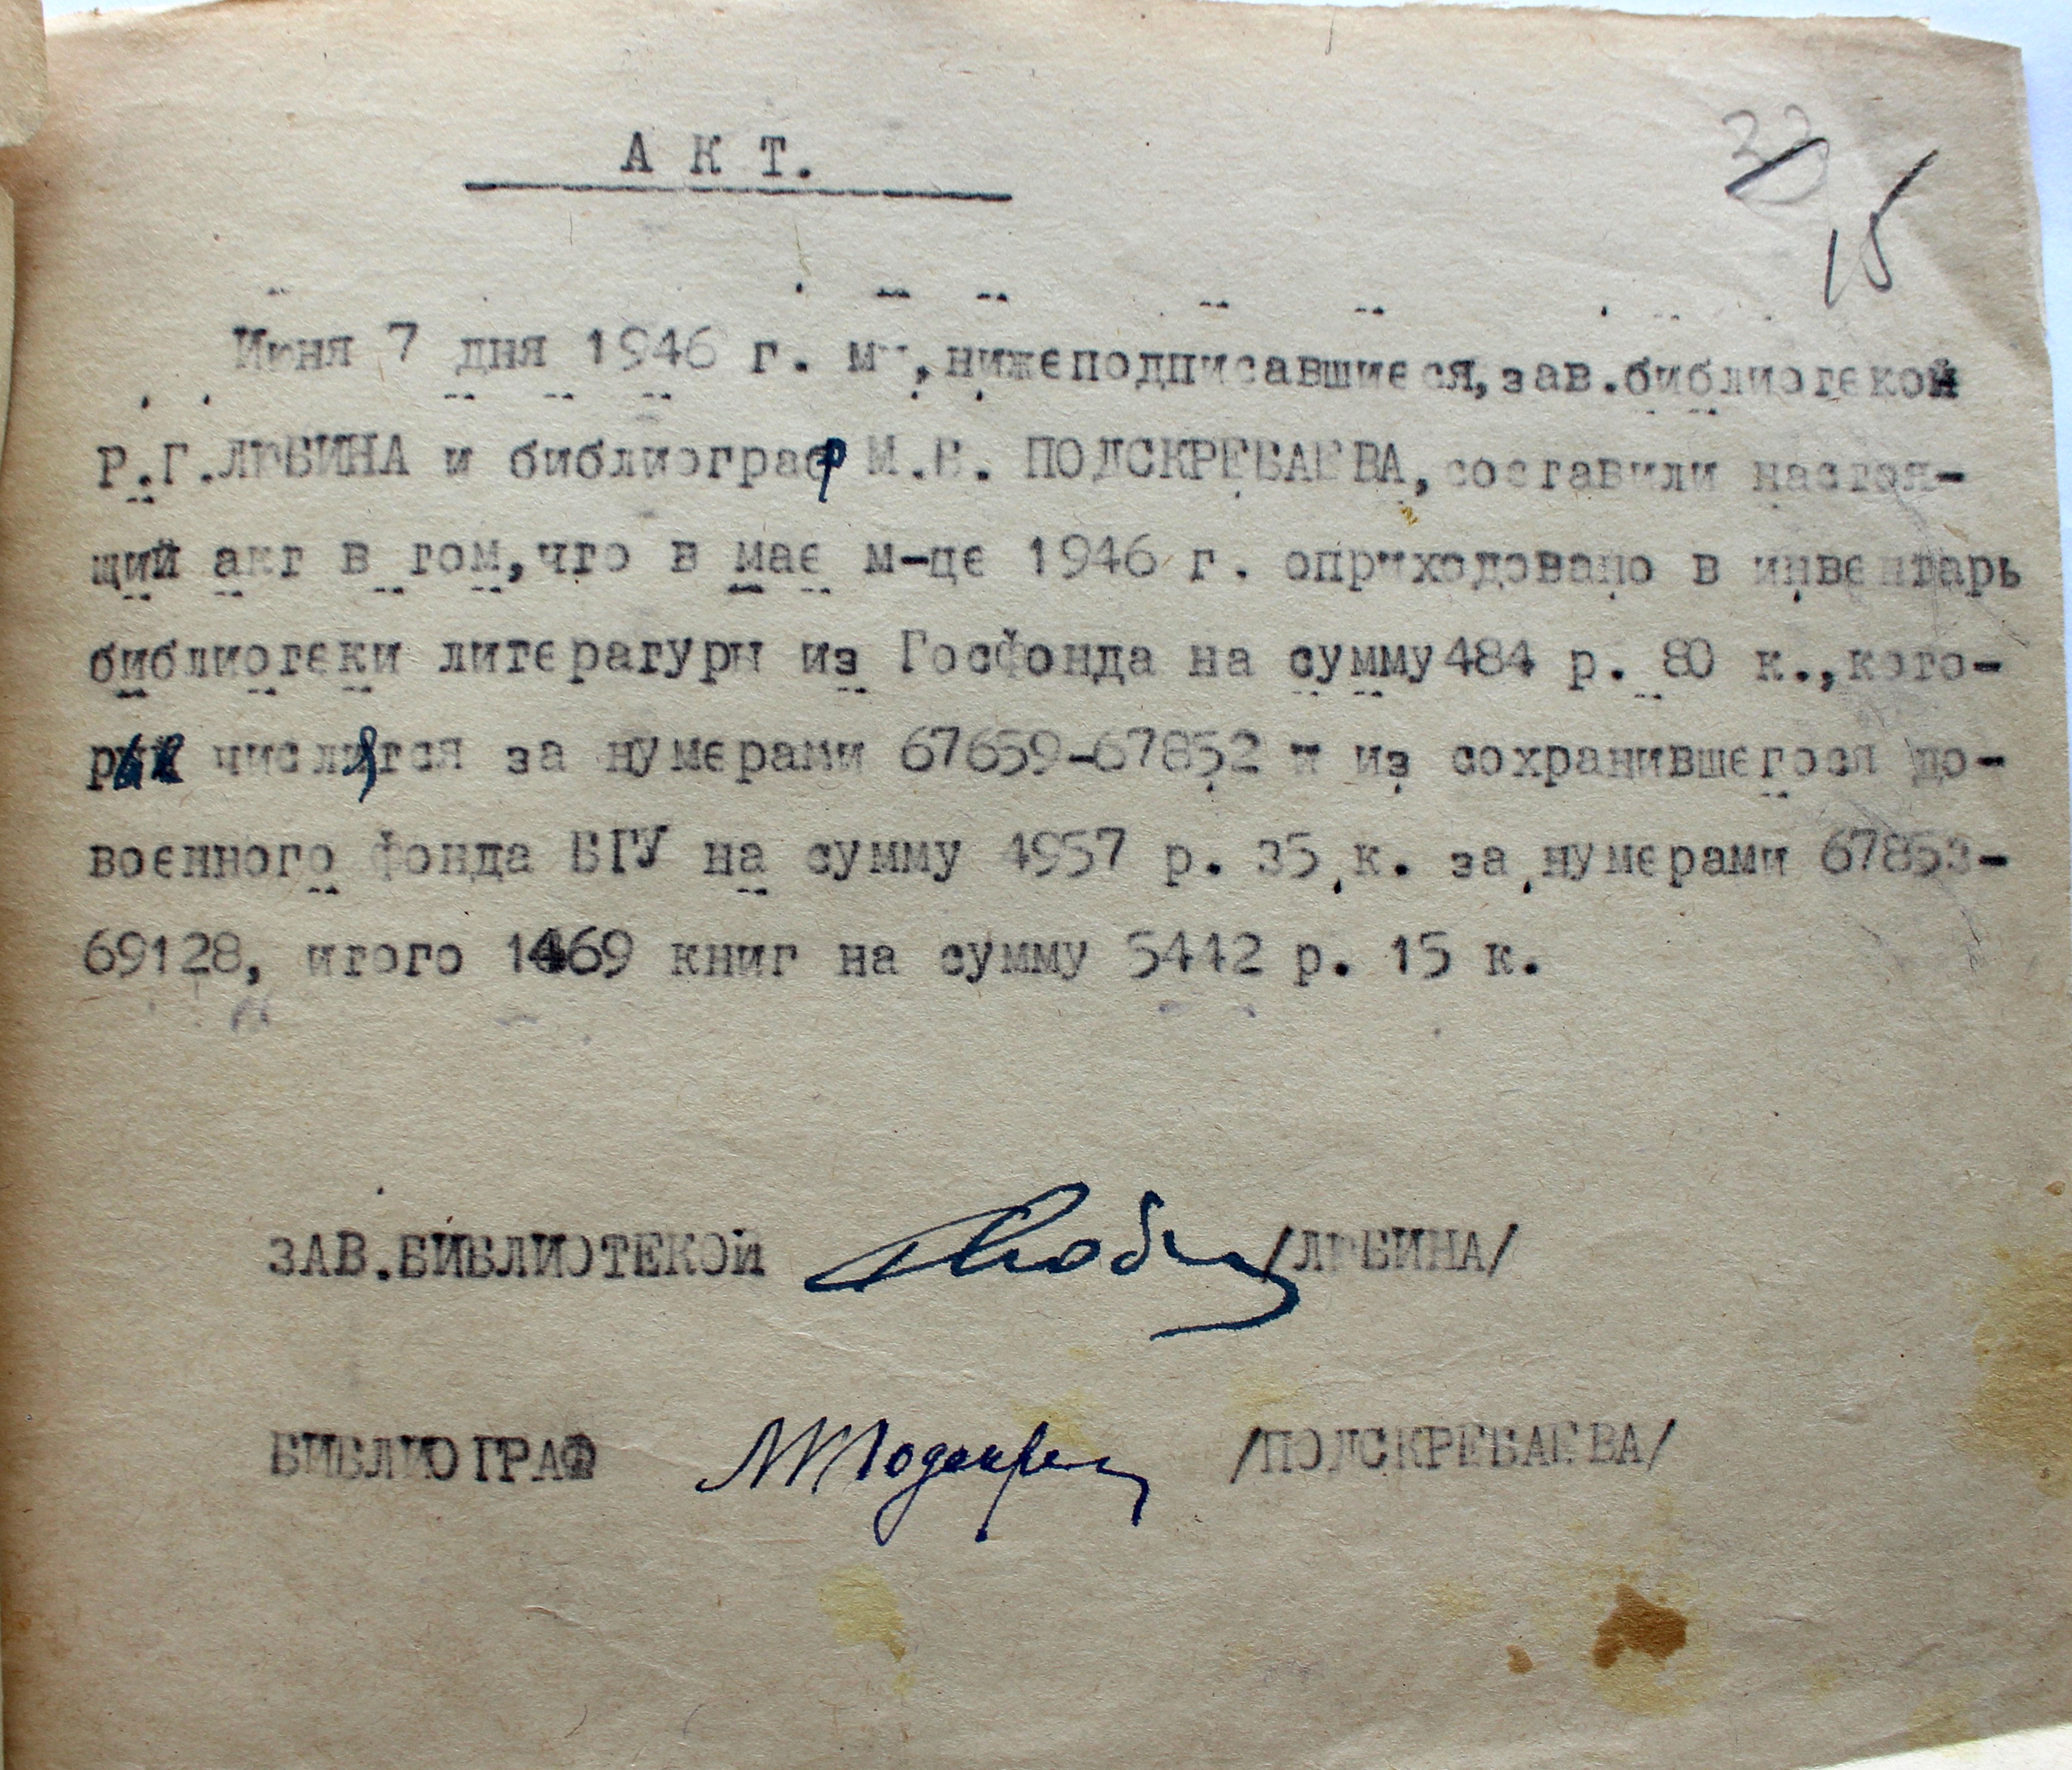 А К Т.
15
Июня 7 дня 1946 г. мы, нижеподписавшиеся, зав.библиотекой
Р.Г.ЛЮБИНА и библиограф М.В. ПОДСКРЕБАЕВА, составили настоя-
щий акт в том, что в мае м-це 1946 г. оприходовано в инвентарь
библиотеки литературы из Госфонда на сумму 484 р. 80 к., кото-
рые числятся за нумерами 67659-67852 и из сохранившегося до-
военного фонда БГУ на сумму 4957 р. 35 к. за нумерами 67853-
69128, итого 1469 книг на сумму 5442 р. 15 к.
ЗАВ.БИБЛИОТЕКОЙ /ЛЮБИНА/
БИБЛИОГРАФ /ПОДСКРЕБАЕВА/